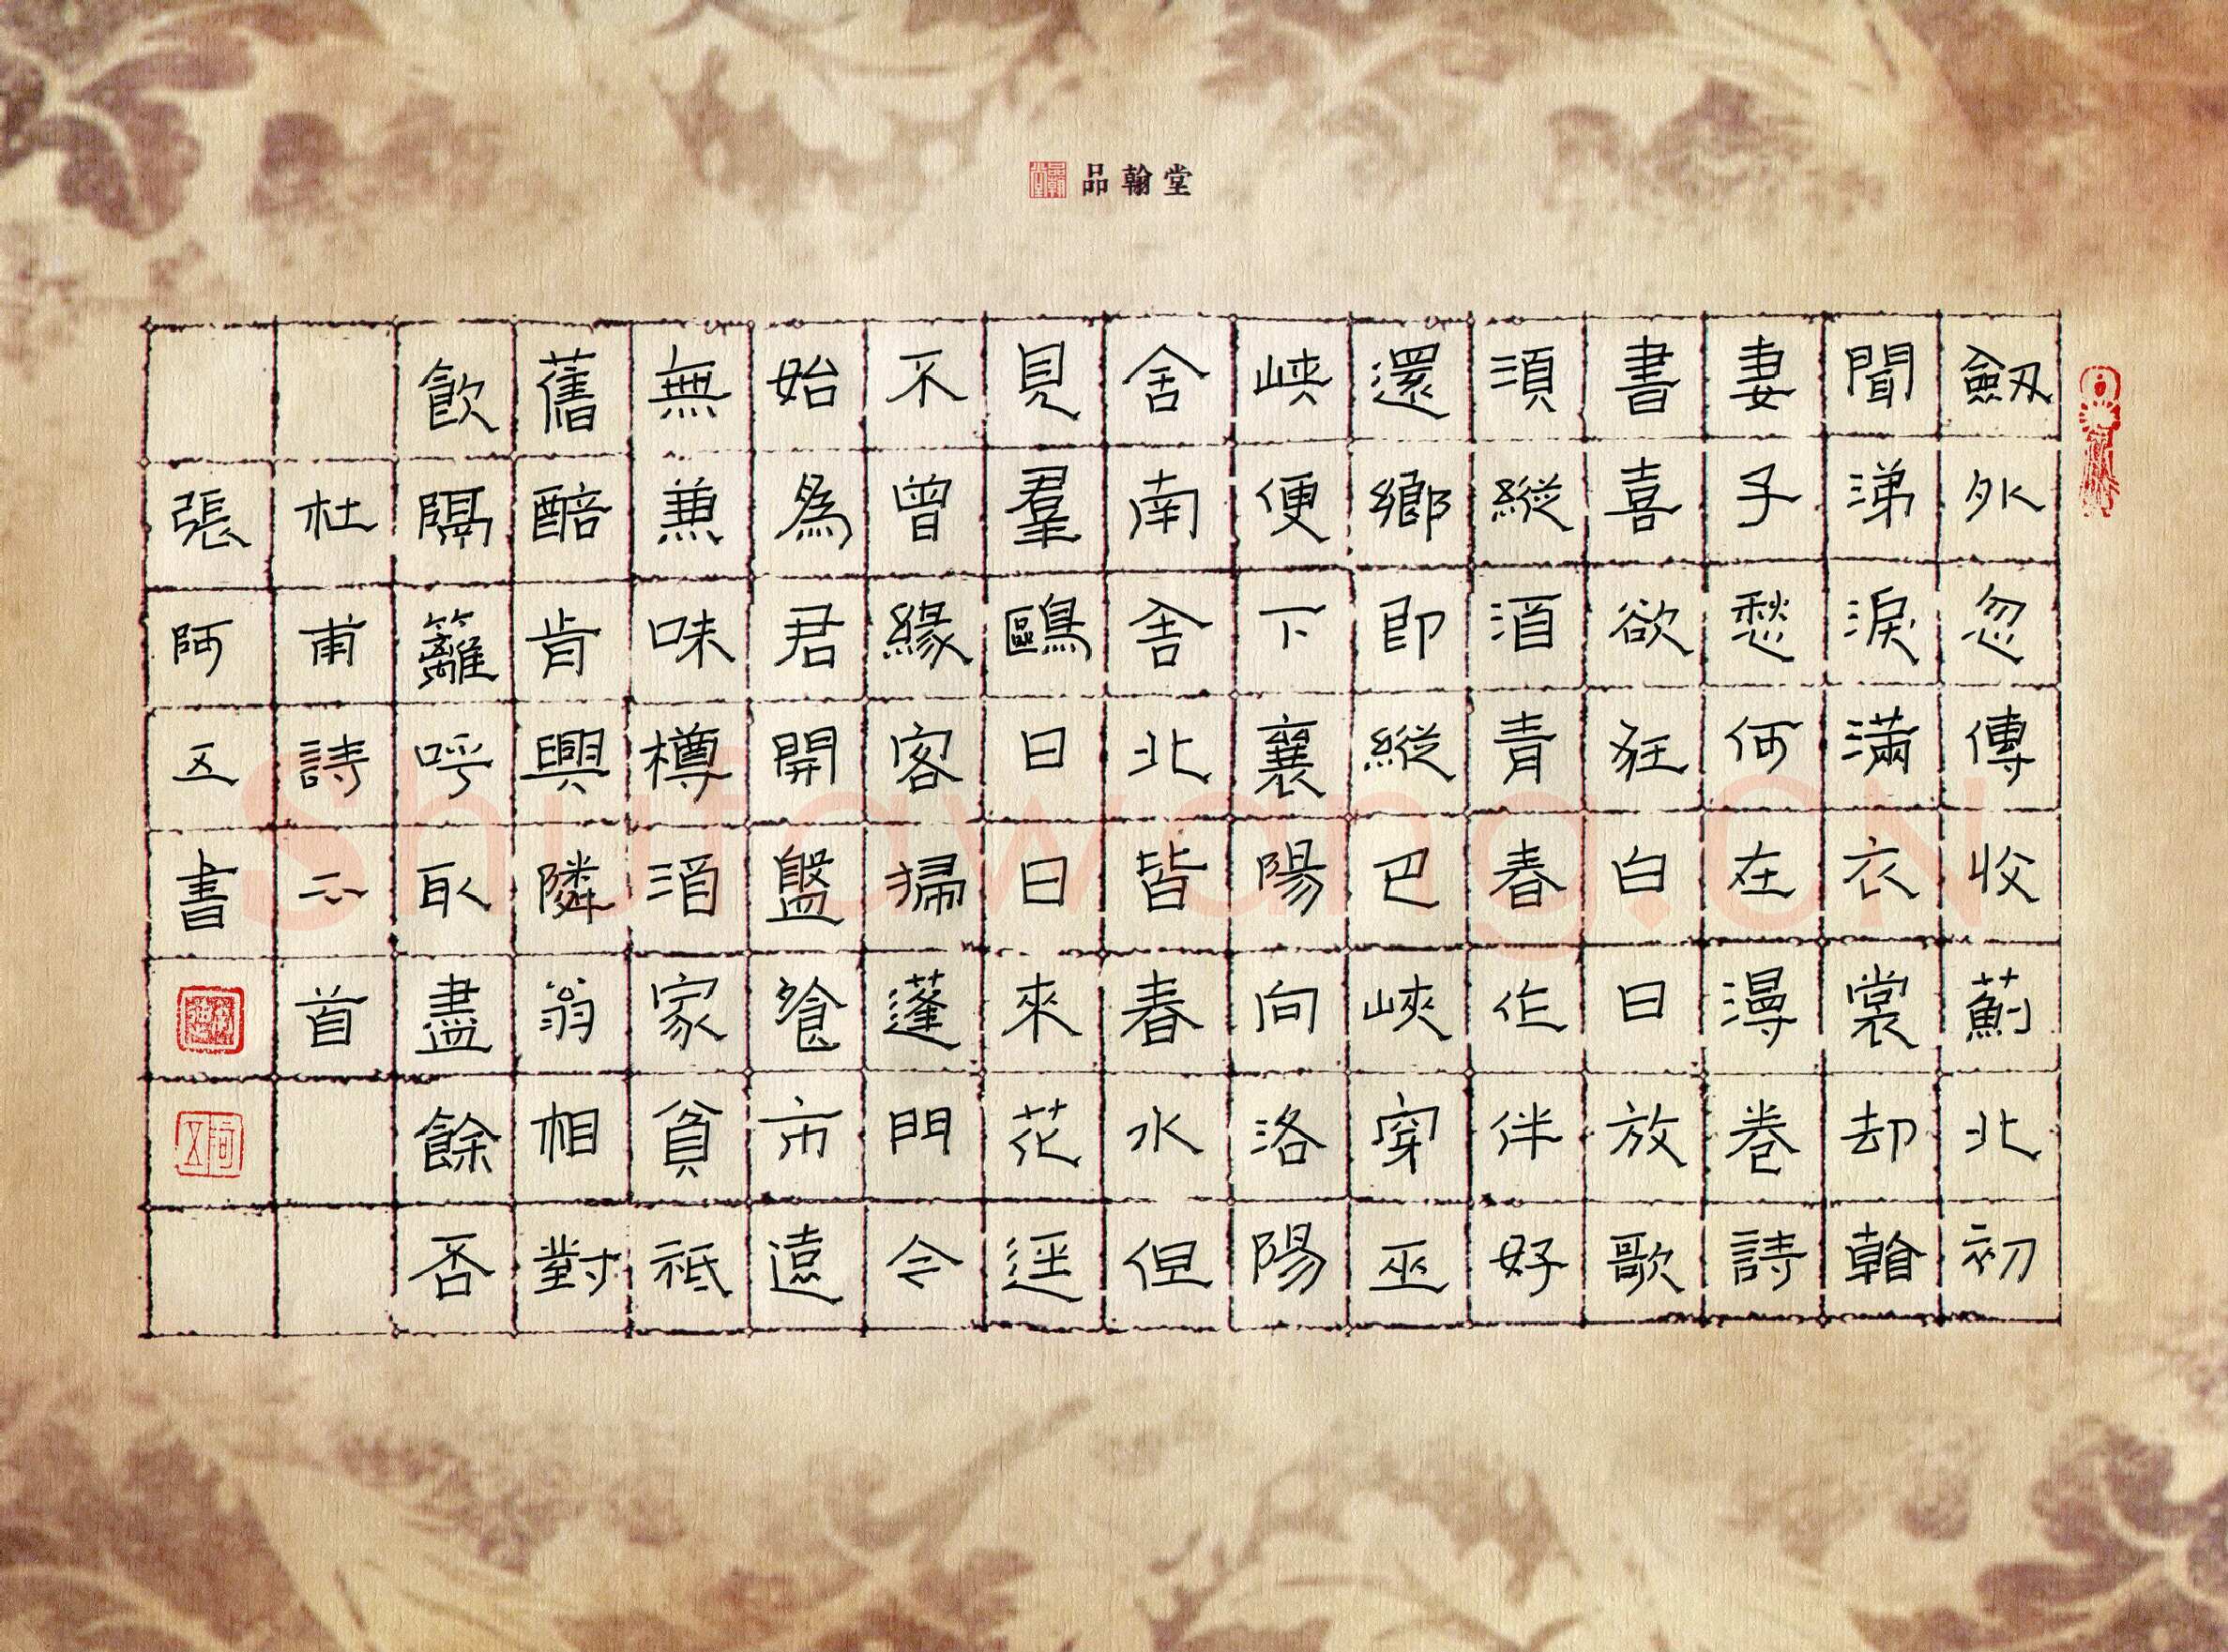 品翰堂
劔外忽傳收薊北初
聞涕淚滿衣裳却看
妻子愁何在漫卷詩
書喜欲狂白日放歌
須縱酒青春作伴好
還鄉即縱巴峽穿巫
峽便下襄陽向洛陽
舍南舍北皆春水但
見羣鷗日日來花逕
不曾緣客掃蓬門今
始為君開盤飱市遠
無兼味樽酒家貧祗
舊醅肯與隣翁相對
飲隔籬呼取盡餘否
杜甫詩二首
張阿五書
阿五
Shufawang.CN